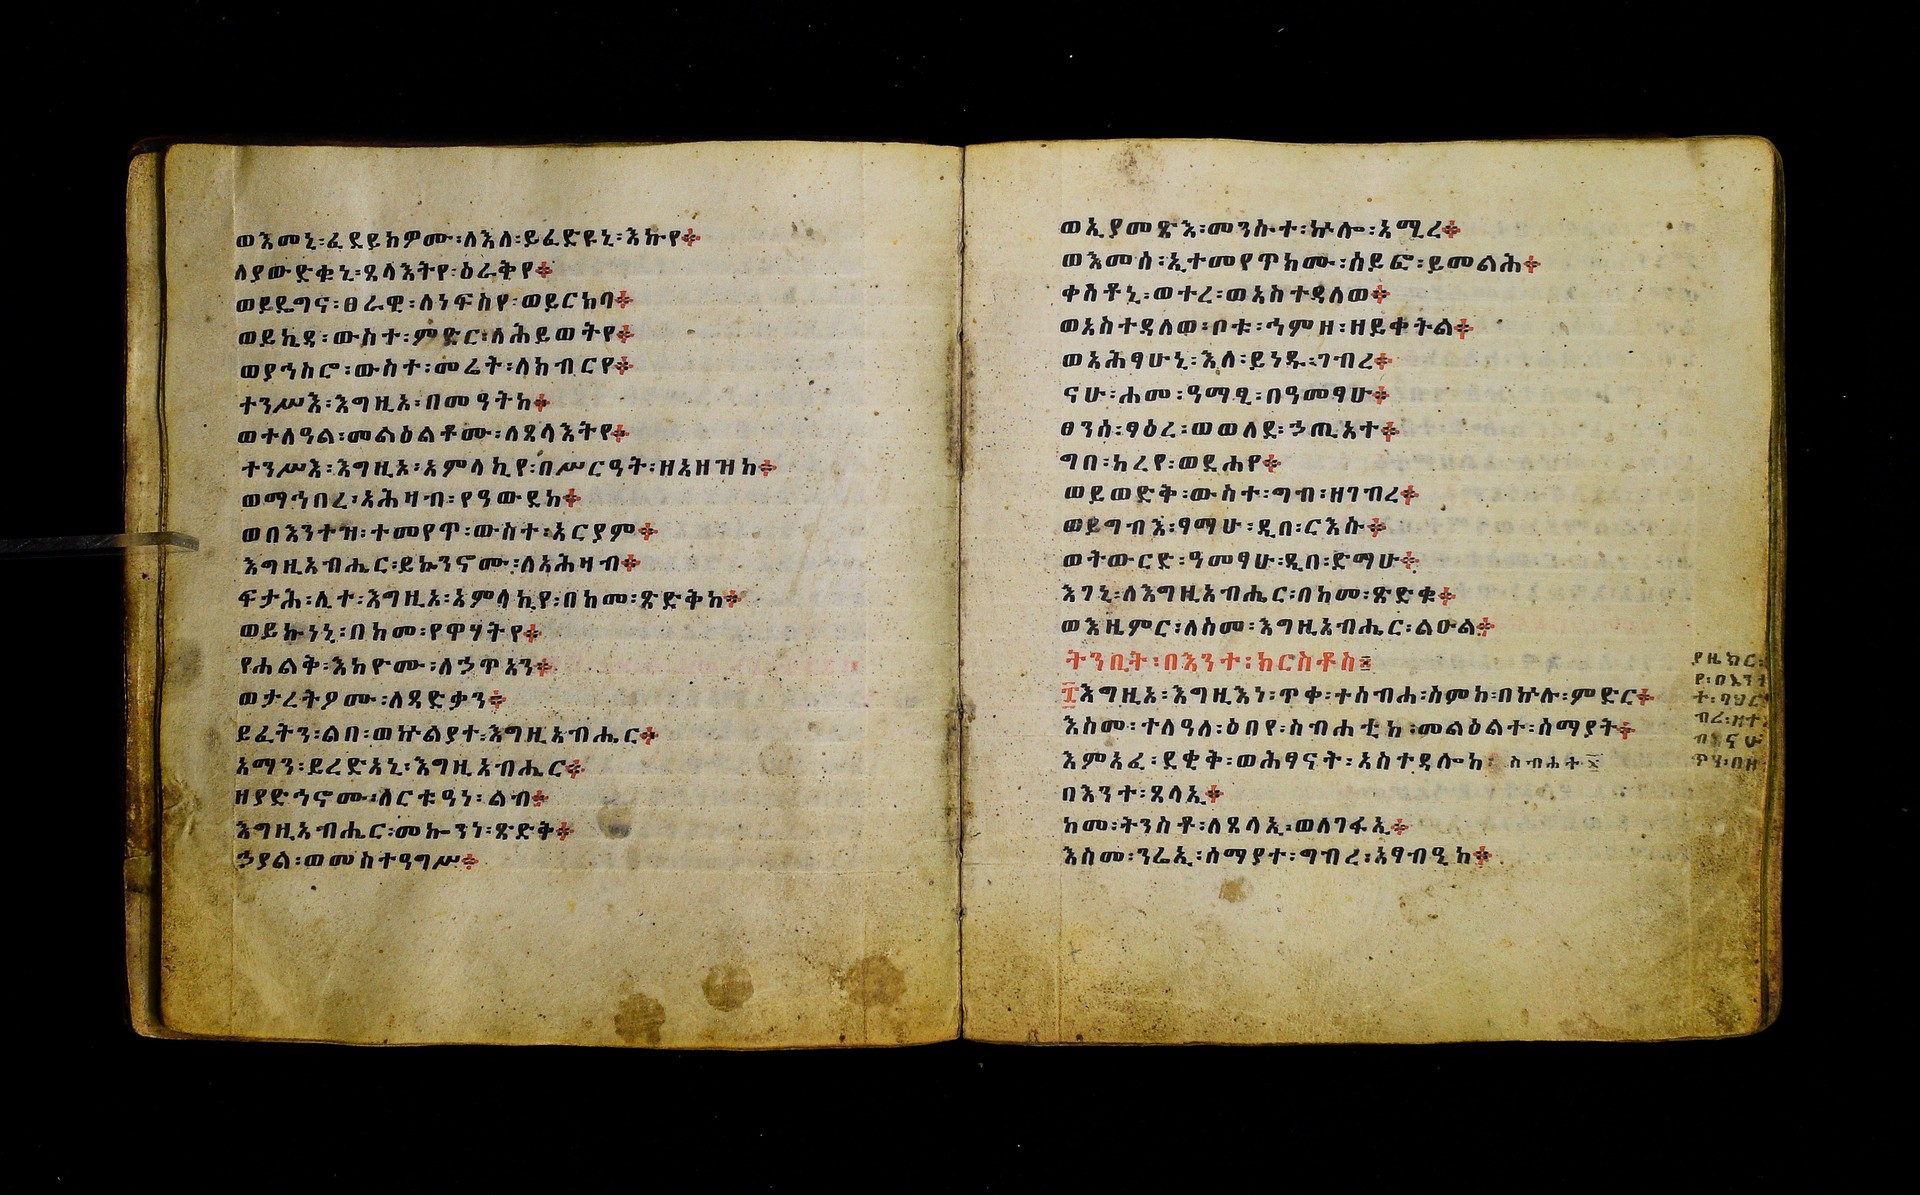 ወእመኒ፡ፈደይክዎሙ፡ለእለ፡ይፈድዩኒ፡እኩየ፨
ለያውድቁኒ፡ጸላእትየ፡ዕራቅየ፨
ወይዴግና፡ፀራዊ፡ለነፍስየ፡ወይርከባ፨
ወይኪዳ፡ውስተ፡ምድር፡ለሕይወትየ፨
ወያኅስሮ፡ውስተ፡መሬት፡ለክብርየ፨
ተንሥእ፡እግዚአ፡በመዓትከ፨
ወተለዓል፡መልዕልቶሙ፡ለጸላእትየ፨
ተንሥእ፡እግዚአ፡አምላኪየ፡በሥርዓት፡ዘአዘዝከ፨
ወማኅበረ፡አሕዛብ፡የዓውደከ፨
ወበእንተዝ፡ተመየጥ፡ውስተ፡አርያም፨
እግዚአብሔር፡ይኴንኖሙ፡ለአሕዛብ፨
ፍታሕ፡ሊተ፡እግዚአ፡አምላኪየ፡በከመ፡ጽድቅከ፨
ወይኩነኒ፡በከመ፡የዋሃትየ፨
የሐልቅ፡እከዮሙ፡ለኃጥአን፨
ወታረትዖሙ፡ለጻድቃን፨
ይፈትን፡ልበ፡ወኵልያተ፡እግዚአብሔር፨
አማን፡ይረድአኒ፡እግዚአብሔር፨
ዘያድኅኖሙ፡ለርቱዓነ፡ልብ፨
እግዚአብሔር፡መኰንነ፡ጽድቅ፨
ኃያል፡ወመስተዓግሥ፨
ወኢያመጽእ፡መንሱተ፡ኵሎ፡አሚረ፨
ወእመሰ፡ኢተመየጥክሙ፡ሰይፎ፡ይመልሕ፨
ቀስቶኒ፡ወተረ፡ወአስተዳለወ፨
ወአስተዳለወ፡ቦቱ፡ኅምዘ፡ዘይቀትል፨
ወአሕፃሁኒ፡እለ፡ይነዱ፡ገብረ፨
ናሁ፡ሐመ፡ዓማፂ፡በዓመፃሁ፨
ፀንሰ፡ፃዕረ፡ወወለደ፡ኃጢአተ፨
ግበ፡ከረየ፡ወደሐየ፨
ወይወድቅ፡ውስተ፡ግብ፡ዘገብረ፨
ወይግብእ፡ፃማሁ፡ዲበ፡ርእሱ፨
ወትውርድ፡ዓመፃሁ፡ዲበ፡ድማሁ፨
እገኒ፡ለእግዚአብሔር፡በከመ፡ጽድቁ፨
ወእዜምር፡ለስመ፡እግዚአብሔር፡ልዑል፨
ትንቢት፡በእንተ፡ክርስቶስ፤
፰እግዚአ፡እግዚእነ፡ጥቀ፡ተሰብሐ፡ስምከ፡በኵሉ፡ምድር፨
እስመ፡ተለዓለ፡ዕበየ፡ስብሐቲከ፡መልዕልተ፡ሰማያት፨
እምአፈ፡ደቂቅ፡ወሕፃናት፡አስተዳሎከ፡ስብሐተ
በእንተ፡ጸላኢ፨
ከመ፡ትንስቶ፡ለጸላኢ፡ወለገፋኢ፨
እስመ፡ንሬኢ፡ሰማያተ፡ግብረ፡አፃብዒከ፨